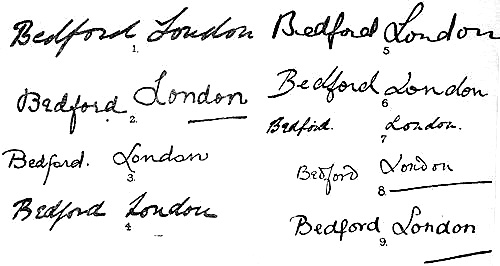 Bedford London
1.
Bedford London
2.
Bedford. London
3.
Bedford London
4.
Bedford London
5.
Bedford London
6.
Bedford. London.
7
Bedford London
8.
Bedford London
9.